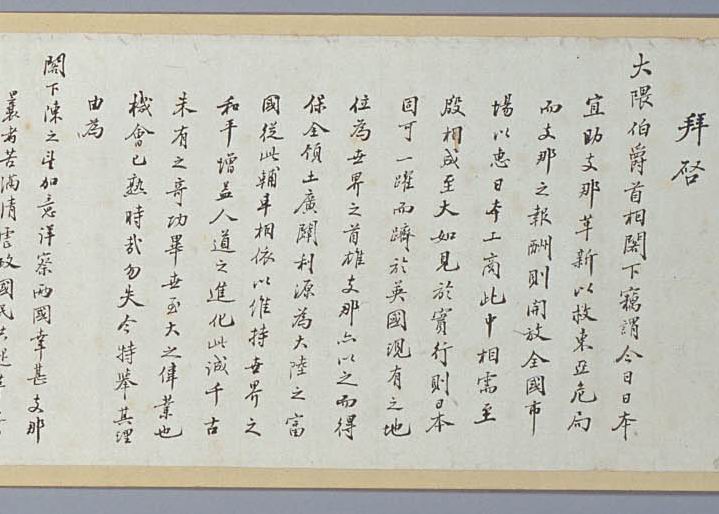 拜啓
大隈伯爵首相閣下竊謂今日日本
宜助支那革新以救東亞危局
而支那之報酬則開放全國市
場以惠日本工商此中相需至
殷相成至大如見於實行則日本
固可一躍而躋於英國現有之地
位為世界之首雄支那亦以之而得
保全領土廣闢利源為大陸之富
國從此輔車相依以維持世界之
和平增益人道之進化此誠千古
未有之奇功畢世至大之偉業也
機會已熟時哉勿失今特舉其理
由為
閣下陳之望加意詳察兩國幸甚支那
曩者苦滿清虐政國民共起革